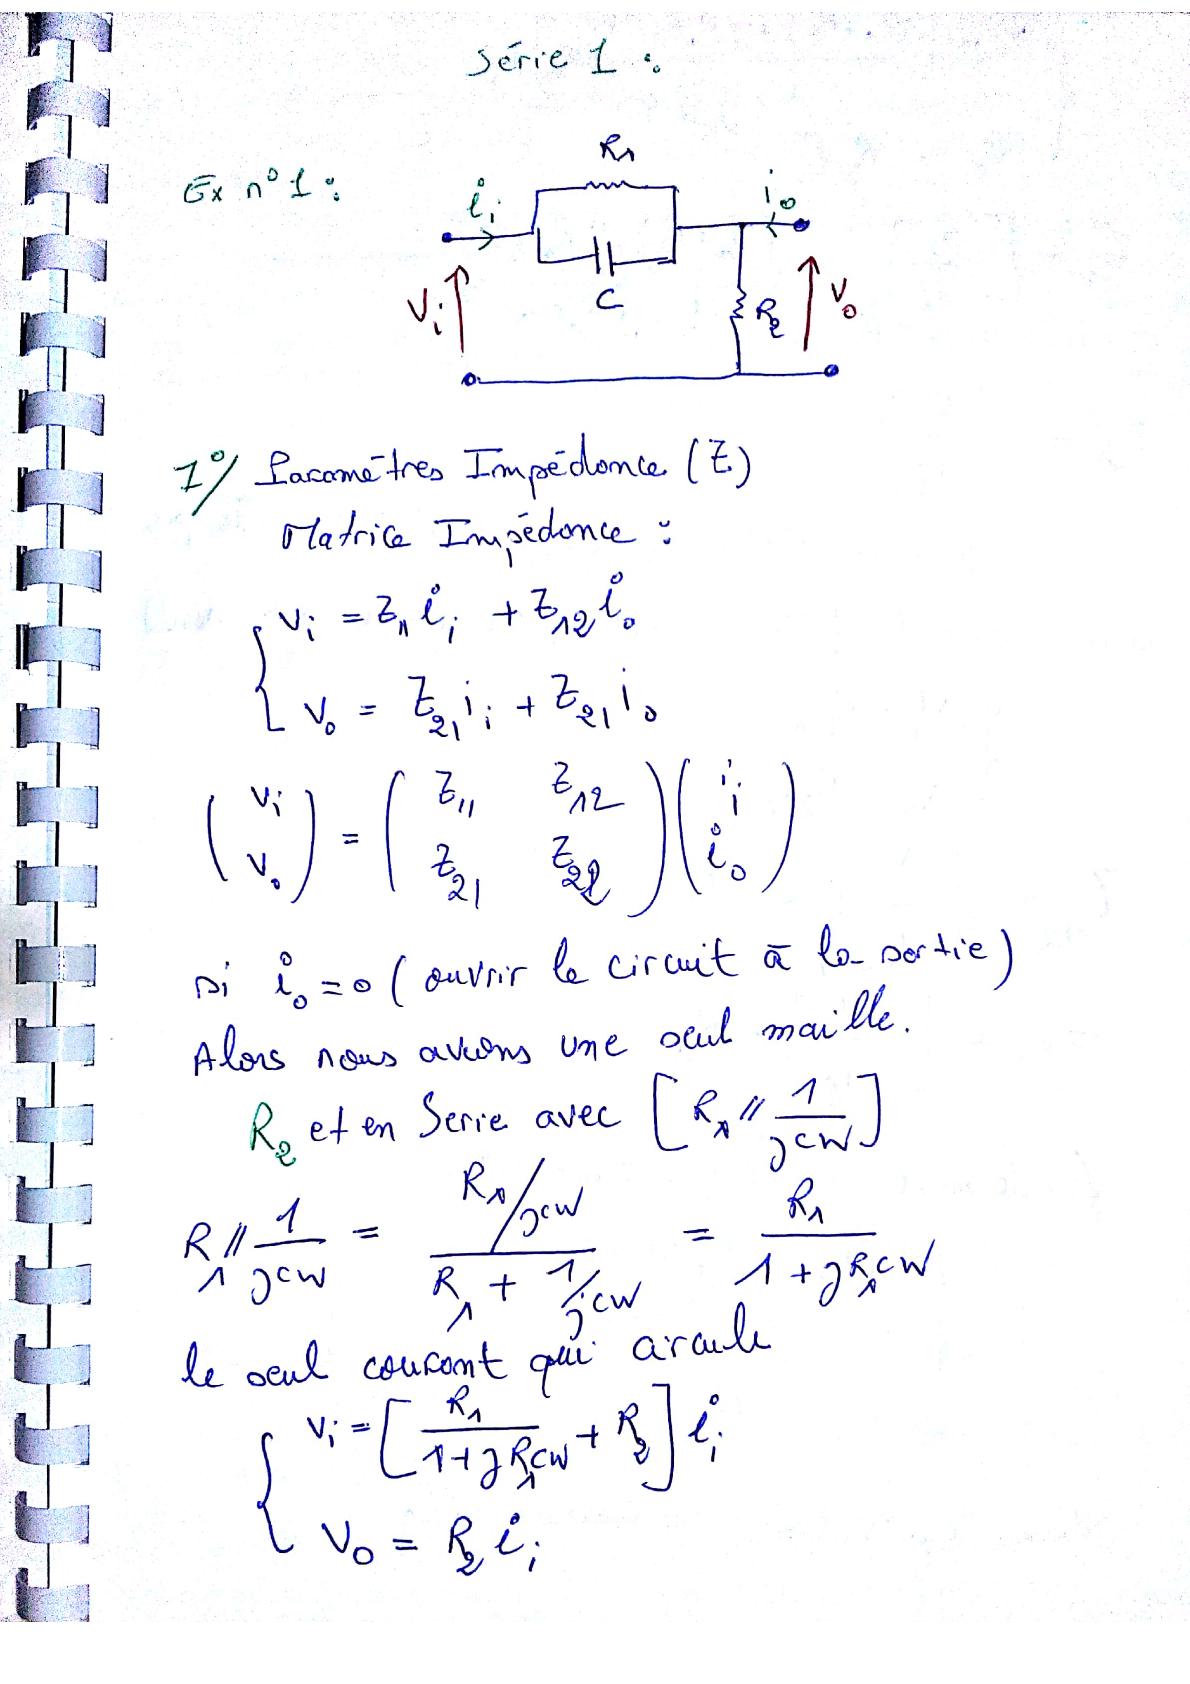 Série 1 :
Ex n° 1 :
R1
ii
io
C
Vi
R2
Vo
1°/ Paramètres Impédance (Z)
Matrice Impédance :
Vi = Z11 ii + Z12 io
Vo = Z21 ii + Z21 io
(Vi Vo) = (Z11 Z12 Z21 Z22)(ii io)
si io = 0 ( ouvrir le circuit à la sortie)
Alors nous avons une seul maille.
R2 et en Serie avec [R1 // 1/jcw]
R1 // 1/jcw = (R1/jcw)/(R1 + 1/jcw) = R1/(1 + jR1cw)
le seul courant qui circule
Vi = [R1/(1+jR1cw) + R2] ii
Vo = R2 ii